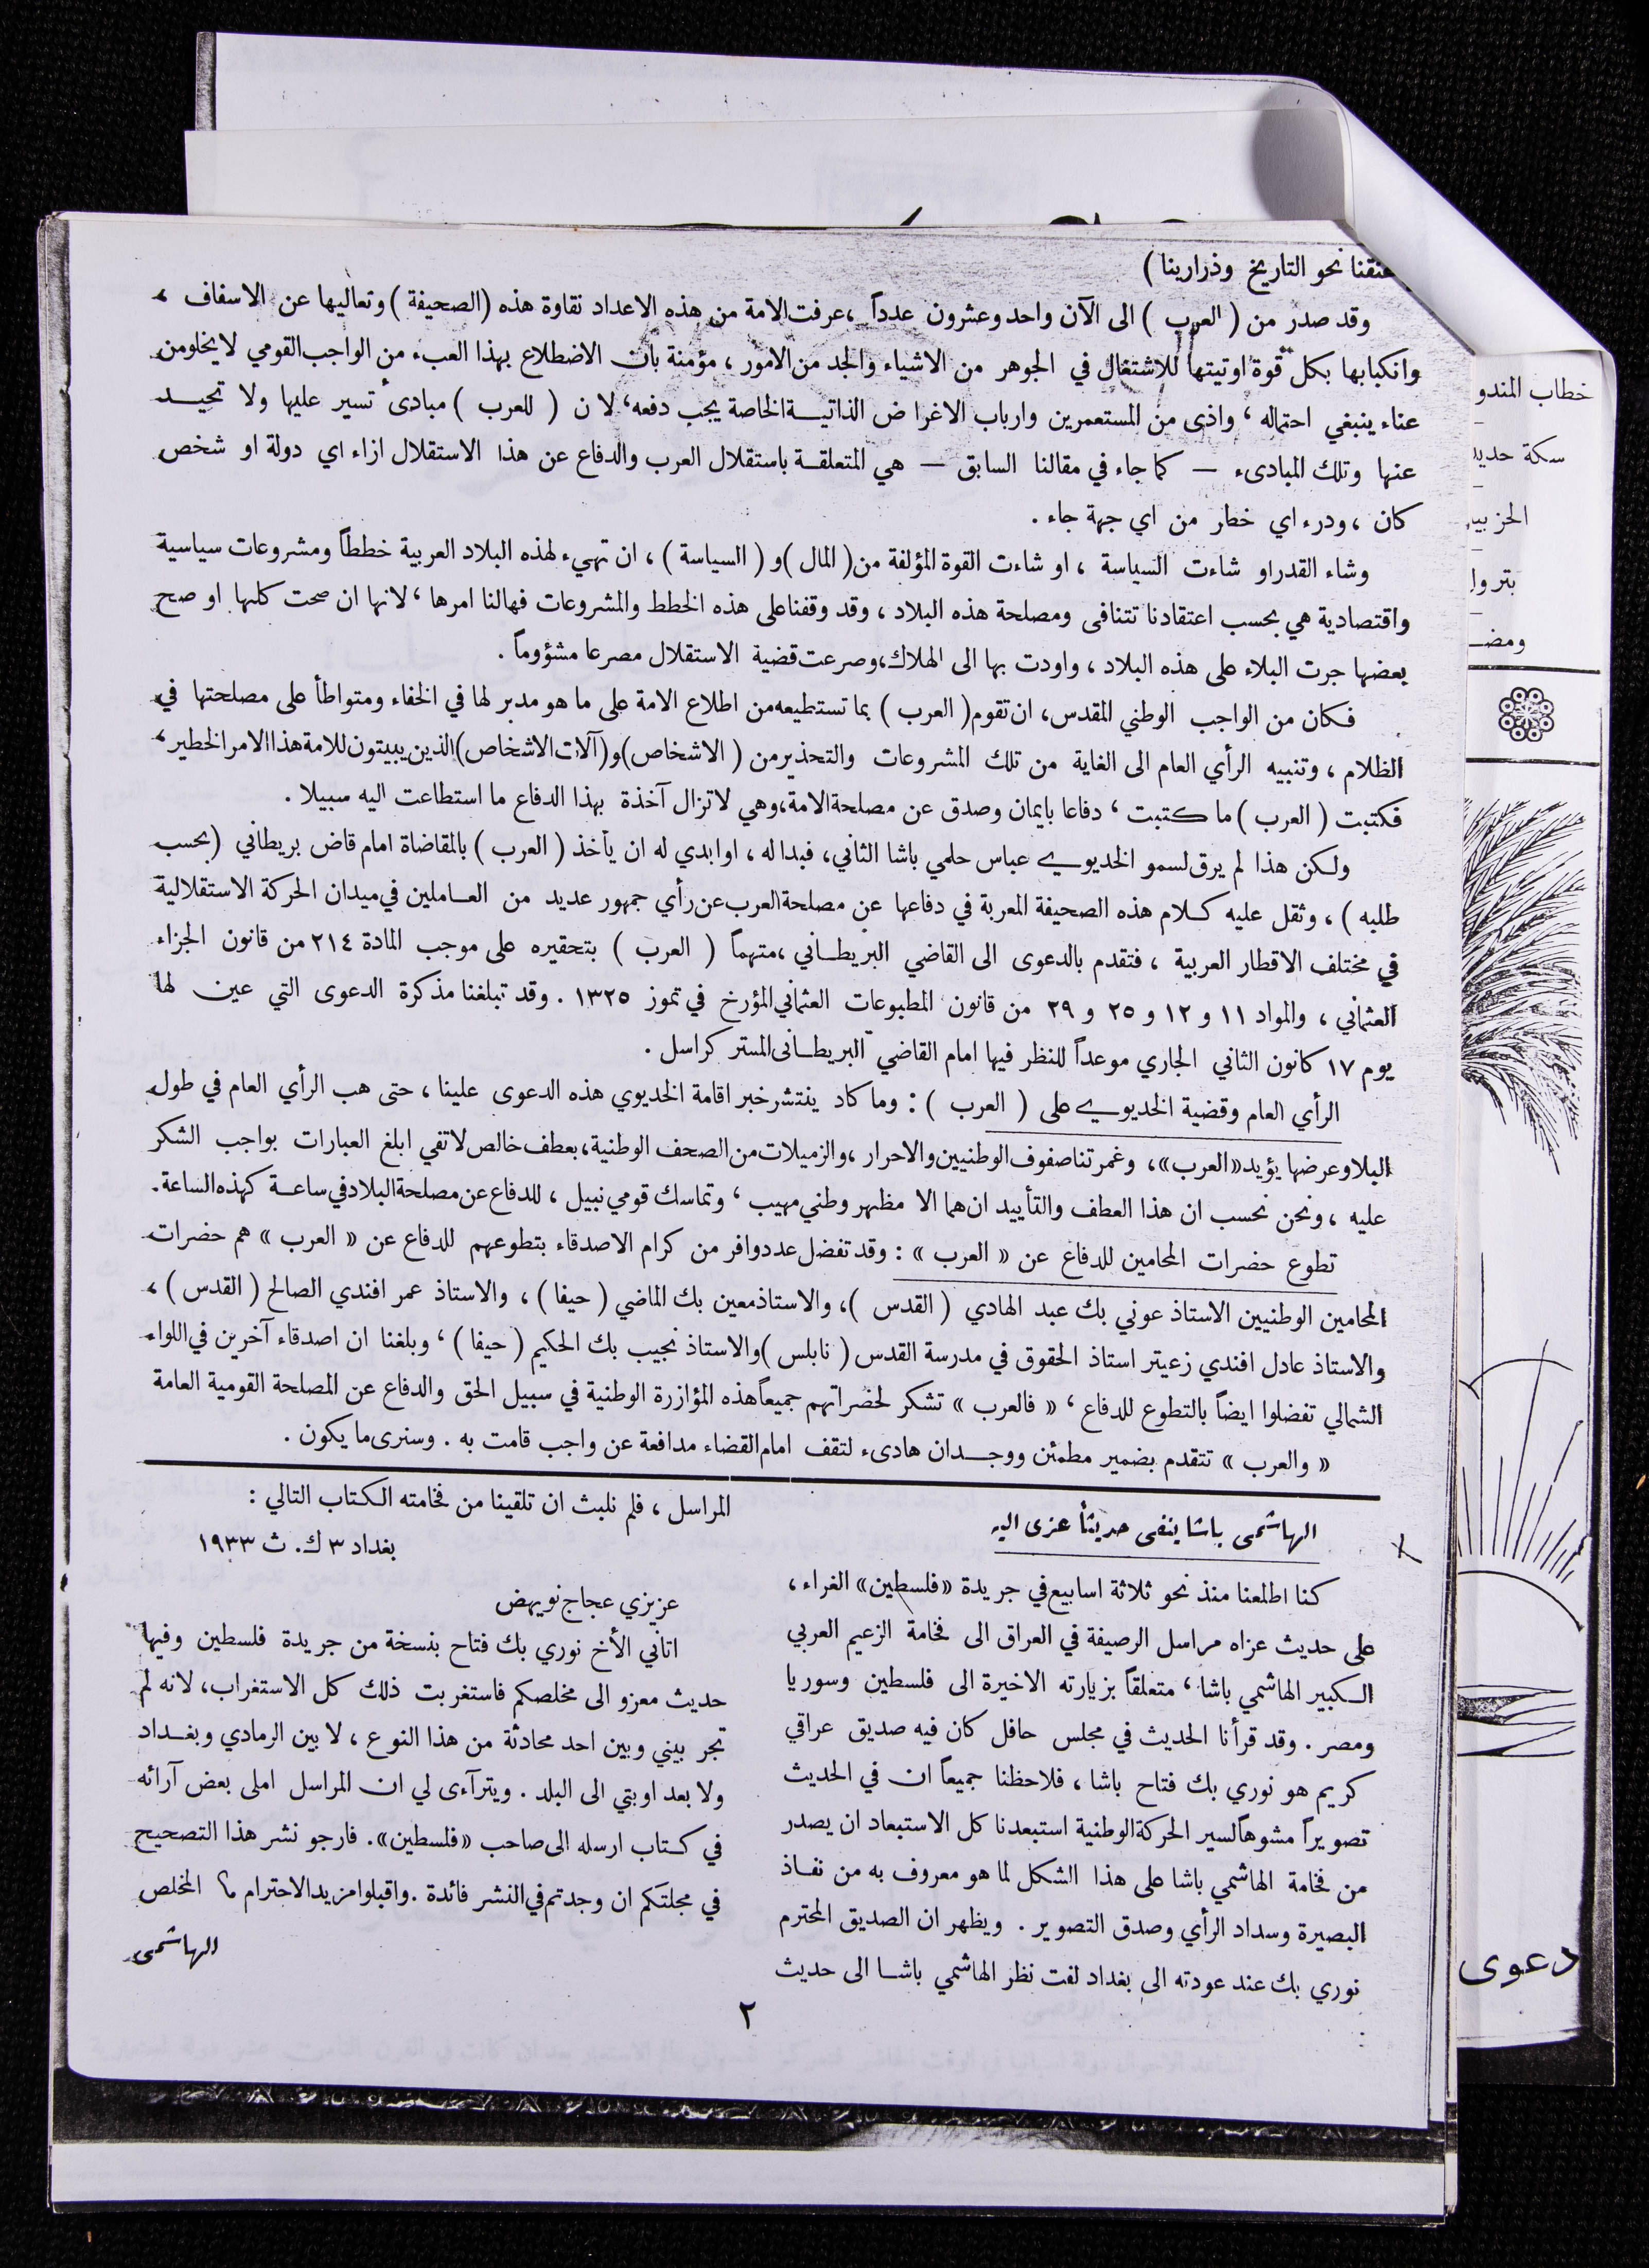 عنقنا نحو التاريخ وذرارينا )
وقد صدر من ( العرب ) الى الآن واحد وعشرون عدداً ، عرفت الامة من هذه الاعداد نقاوة هذه ( الصحيفة ) وتعاليها عن الاسفاف ،
وانكبابها بكل قوة اوتيتها للاشتغال في الجوهر من الاشياء والجد من الامور ، مؤمنة بان الاضطلاع بهذا العبء من الواجب القومي لا يخلو من
عناء ينبغي احتماله ، واذى من المستعمرين وارباب الاغراض الذاتيــة الخاصة يجب دفعه ، لان ( للعرب ) مبادىء تسير عليها ولا تحيــد
عنها وتلك المبادىء — كما جاء في مقالنا السابق — هي المتعلقــة باستقلال العرب والدفاع عن هذا الاستقلال ازاء اي دولة او شخص
كان ، ودرء اي خطر من اي جهة جاء .
وشاء القدر او شاءت السياسة ، او شاءت القوة المؤلفة من ( المال ) و ( السياسة ) ، ان تهيء لهذه البلاد العربية خططاً ومشروعات سياسية
واقتصادية هي بحسب اعتقادنا تتنافى ومصلحة هذه البلاد ، وقد وقفنا على هذه الخطط والمشروعات فهالنا امرها ، لانها ان صحت كلها او صح
بعضها جرت البلاء على هذه البلاد ، واودت بها الى الهلاك ، وصرعت قضية الاستقلال مصرعا مشؤوماً .
فكان من الواجب الوطني المقدس ، ان تقوم ( العرب ) بما تستطيعه من اطلاع الامة على ما هو مدبر لها في الخفاء ومتواطأ على مصلحتها في
الظلام ، وتنبيه الرأي العام الى الغاية من تلك المشروعات والتحذير من ( الاشخاص ) و ( آلات الاشخاص ) الذين يبيتون للامة هذا الامر الخطير ،
فكتبت ( العرب ) ما كتبت ، دفاعا بايمان وصدق عن مصلحة الامة ، وهي لا تزال آخذة بهذا الدفاع ما استطاعت اليه سبيلا .
ولكن هذا لم يرق لسمو الخديوي عباس حلمي باشا الثاني ، فبدا له ، او ابدي له ان يأخذ ( العرب ) بالمقاضاة امام قاض بريطاني ( بحسب
طلبه ) ، وثقل عليه كــلام هذه الصحيفة المعربة في دفاعها عن مصلحة العرب عن رأي جمهور عديد من العــاملين في ميدان الحركة الاستقلالية
في مختلف الاقطار العربية ، فتقدم بالدعوى الى القاضي البريطــاني ، متهماً ( العرب ) بتحقيره على موجب المادة ٢١٤ من قانون الجزاء
العثماني ، والمواد ١١ و ١٢ و ٢٥ و ٢٩ من قانون المطبوعات العثماني المؤرخ في تموز ١٣٢٥ . وقد تبلغنا مذكرة الدعوى التي عين لها
يوم ١٧ كانون الثاني الجاري موعداً للنظر فيها امام القاضي البريطــانى المستر كراسل .
الرأي العام وقضية الخديوي على ( العرب ) : وما كاد ينتشر خبر اقامة الخديوي هذه الدعوى علينا ، حتى هب الرأي العام في طول
البلاد وعرضها يؤيد « العرب » ، وغمرتنا صفوف الوطنيين والاحرار ، والزميلات من الصحف الوطنية ، بعطف خالص لا تفي ابلغ العبارات بواجب الشكر
عليه ، ونحن نحسب ان هذا العطف والتأييد ان هما الا مظهر وطني مهيب ، وتماسك قومي نبيل ، للدفاع عن مصلحة البلاد في ساعــة كهذه الساعة .
تطوع حضرات المحامين للدفاع عن « العرب » : وقد تفضل عدد وافر من كرام الاصدقاء بتطوعهم للدفاع عن « العرب » هم حضرات
المحامين الوطنيين الاستاذ عوني بك عبد الهادي ( القدس ) ، والاستاذ معين بك الماضي ( حيفا ) ، والاستاذ عمر افندي الصالح ( القدس ) ،
والاستاذ عادل افندي زعيتر استاذ الحقوق في مدرسة القدس ( نابلس ) والاستاذ نجيب بك الحكيم ( حيفا ) ، وبلغنا ان اصدقاء آخرين في اللواء
الشمالي تفضلوا ايضاً بالتطوع للدفاع ، « فالعرب » تشكر لحضراتهم جميعاً هذه المؤازرة الوطنية في سبيل الحق والدفاع عن المصلحة القومية العامة
« والعرب » تتقدم بضمير مطمئن ووجــدان هادىء لتقف امام القضاء مدافعة عن واجب قامت به . وسنرى ما يكون .
الهاشمي باشا ينفي حديثاً عزي اليه
كنا اطلعنا منذ نحو ثلاثة اسابيع في جريدة « فلسطين » الغراء ،
على حديث عزاه مراسل الرصيفة في العراق الى فخامة الزعيم العربي
الــكبير الهاشمي باشا ، متعلقاً بزيارته الاخيرة الى فلسطين وسوريا
ومصر . وقد قرأنا الحديث في مجلس حافل كان فيه صديق عراقي
كريم هو نوري بك فتاح باشا ، فلاحظنا جميعاً ان في الحديث
تصويراً مشوهاً لسير الحركة الوطنية استبعدنا كل الاستبعاد ان يصدر
من فخامة الهاشمي باشا على هذا الشكل لما هو معروف به من نفــاذ
البصيرة وسداد الرأي وصدق التصوير . ويظهر ان الصديق المحترم
نوري بك عند عودته الى بغداد لفت نظر الهاشمي باشــا الى حديث
المراسل ، فلم نلبث ان تلقينا من فخامته الكتاب التالي :
بغداد ٣ ك. ث ١٩٣٣
عزيزي عجاج نويهض
اتاني الأخ نوري بك فتاح بنسخة من جريدة فلسطين وفيها
حديث معزو الى مخلصكم فاستغربت ذلك كل الاستغراب ، لانه لم
تجر بيني وبين احد محادثة من هذا النوع ، لا بين الرمادي وبغــداد
ولا بعد اوبتي الى البلد . ويتراءى لي ان المراسل املى بعض آرائه
في كــتاب ارسله الى صاحب « فلسطين » . فارجو نشر هذا التصحيح
في مجلتكم ان وجدتم في النشر فائدة . واقبلوا مزيد الاحترام المخلص
الهاشمي
٢
خطاب المندو
سكة حديد
الحزبية
بترول
ومضـ
دعوى